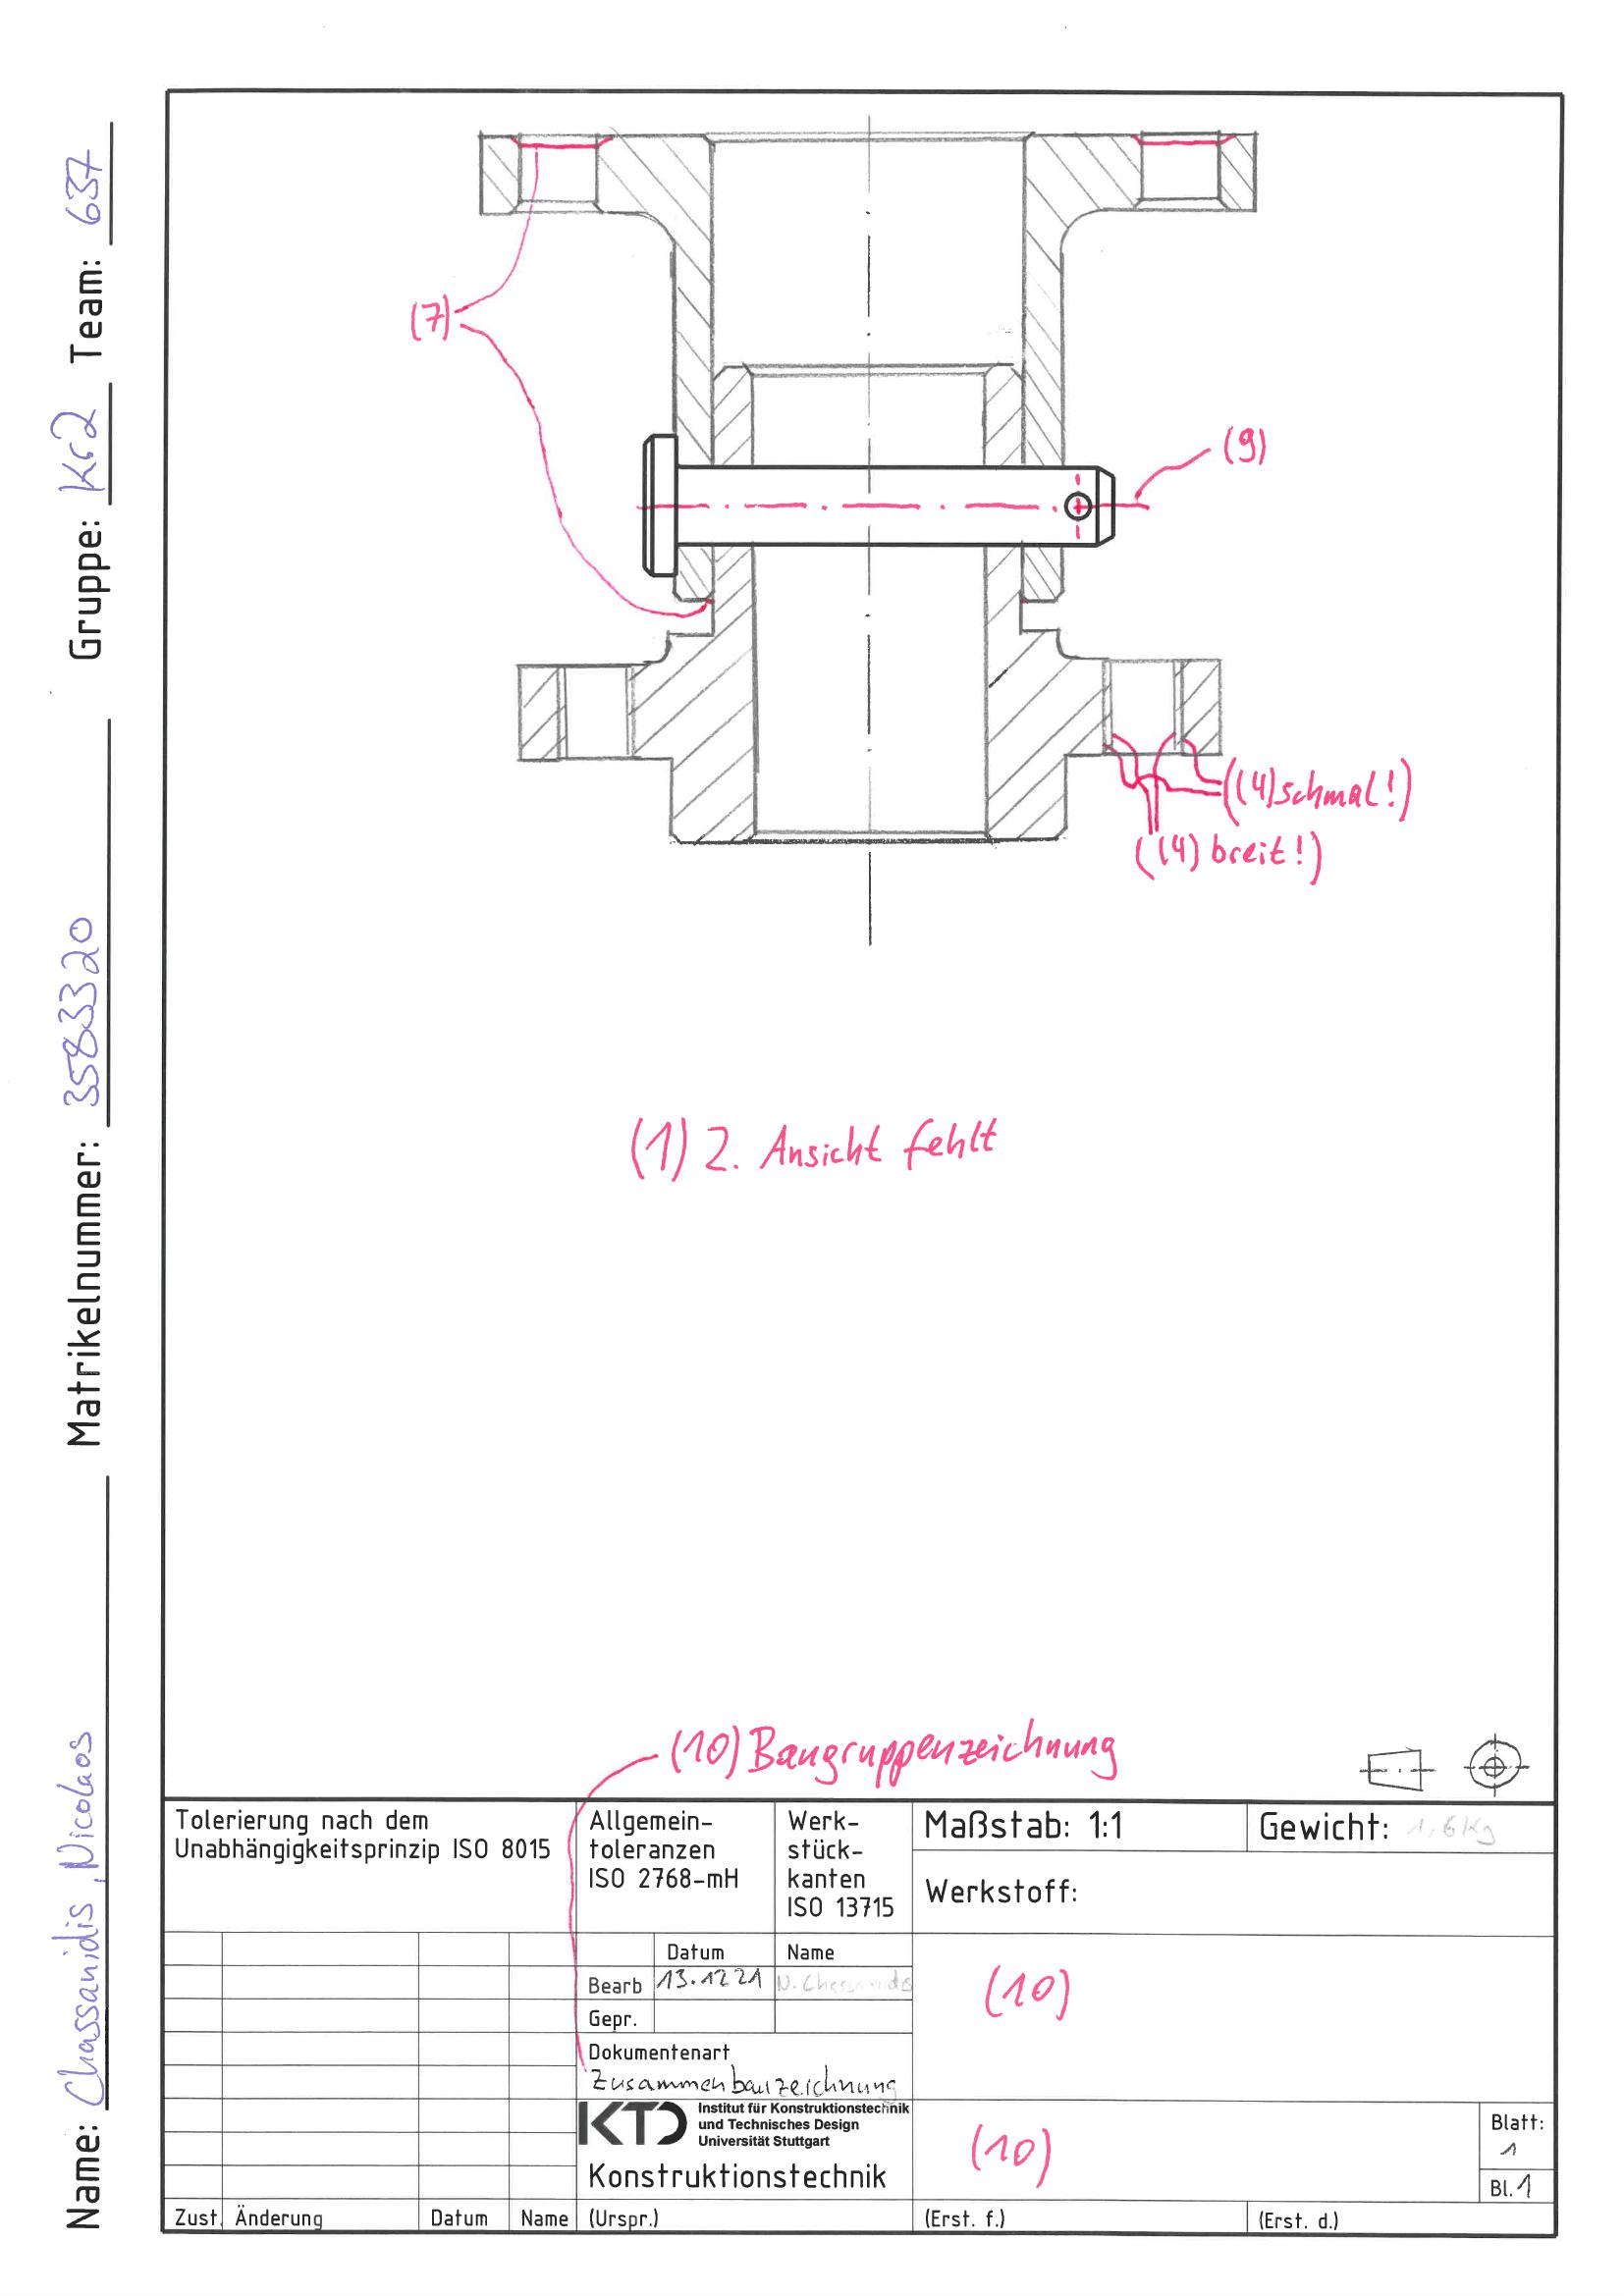 Name: Chassanidis, Nicolaos Matrikelnummer: 3583320 Gruppe: Kr2 Team: 637
(7)
(9)
((4) schmal!)
((4) breit!)
(1) 2. Ansicht fehlt
(10) Baugruppenzeichnung
Tolerierung nach dem
Unabhängigkeitsprinzip ISO 8015
Allgemein-
toleranzen
ISO 2768-mH
Werk-
stück-
kanten
ISO 13715
Maßstab: 1:1
Gewicht: 1,6 Kg
Werkstoff:
Datum Name
Bearb 13.12.21 N. Chassanidis
Gepr.
(10)
Dokumentenart
Zusammenbauzeichnung
KTD
Institut für Konstruktionstechnik
und Technisches Design
Universität Stuttgart
Konstruktionstechnik
(10)
Blatt:
1
Bl. 1
Zust. Änderung Datum Name (Urspr.) (Erst. f.) (Erst. d.)